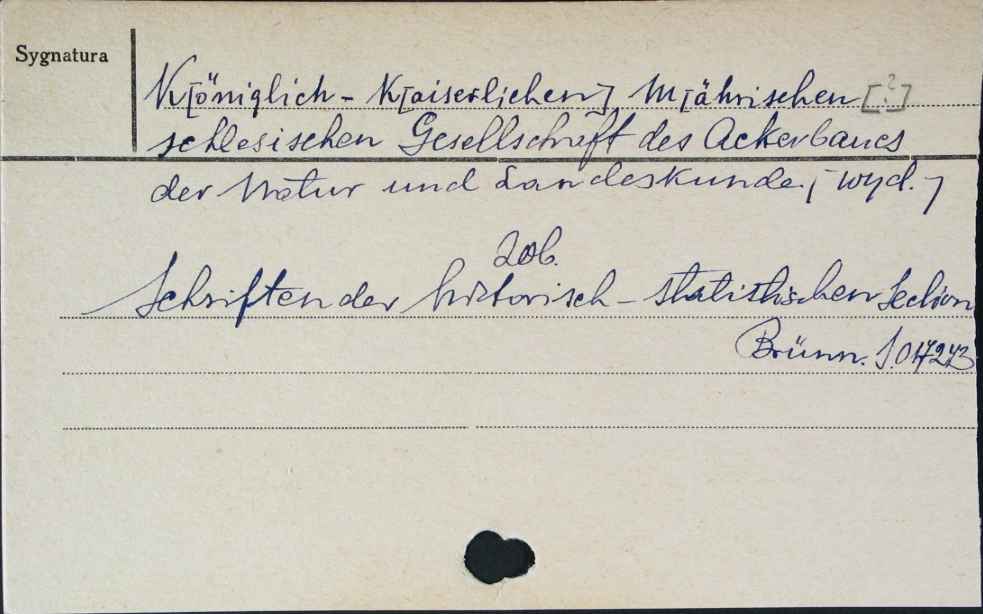 Sygnatura
K[öniglich - K[aiserlichen] M[ährischen [?]
schlesischen Gesellschaft des Ackerbaues
der Natur und Landeskunde, [wyd.]
zob.
Schriften der historisch - statistischen Section
Brünn. S.017273